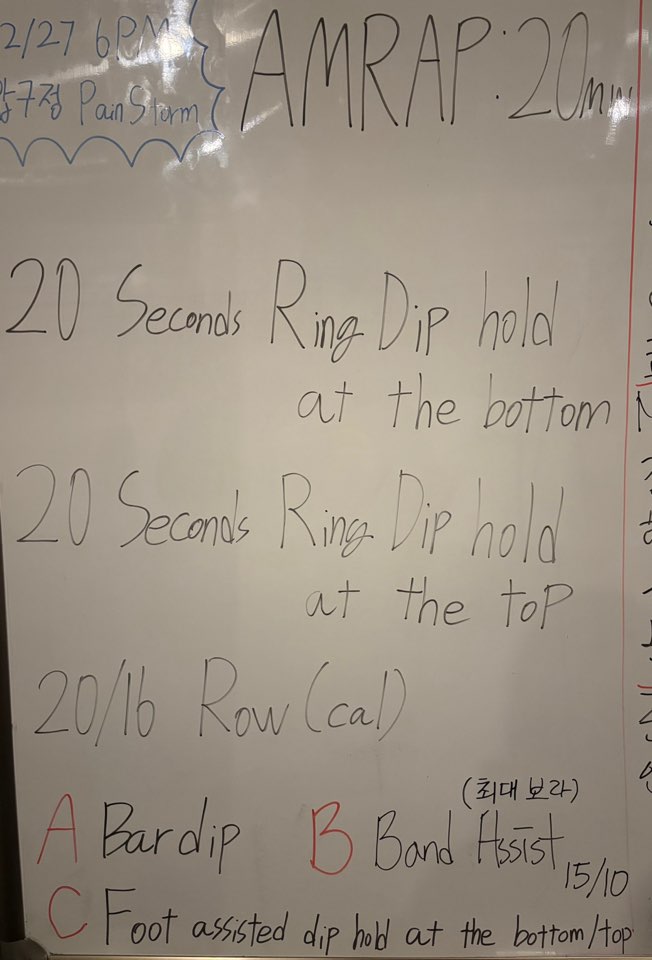 2/27 6PM
압구정 Pain Storm
AMRAP: 20min
20 Seconds Ring Dip hold
at the bottom
20 Seconds Ring Dip hold
at the top
20/16 Row (cal)
(최대 보라)
A Bar dip B Band Assist 15/10
C Foot assisted dip hold at the bottom/top